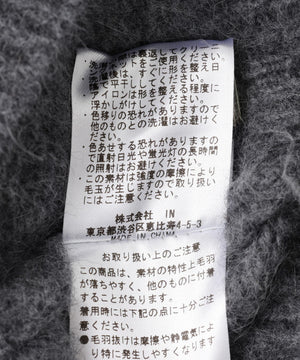 は裏返してクリーニ
ングネットをご使用ください。
・洗濯後は、すぐに形を整え日
陰で平干ししてください。
・アイロンは形を整える程度に
浮かしがけしてください。
・色移りの恐れがありますので
他のものとの洗濯はお避けく
ださい。
・色あせする恐れがありますの
で直射日光や蛍光灯の長時間
の照射はお避けください。
・この素材は強度の摩擦により
毛玉が生じますので取り扱い
にはご注意ください。
株式会社 IN
東京都渋谷区恵比寿4-5-3
MADE IN CHINA
お取り扱い上のご注意
この商品は、素材の特性上毛羽
が落ちやすく、他のものに付着
することがあります。
着用時には下記の点に十分ご注
意ください。
●毛羽抜けは摩擦や静電気によ
り特に発生しやすくなります